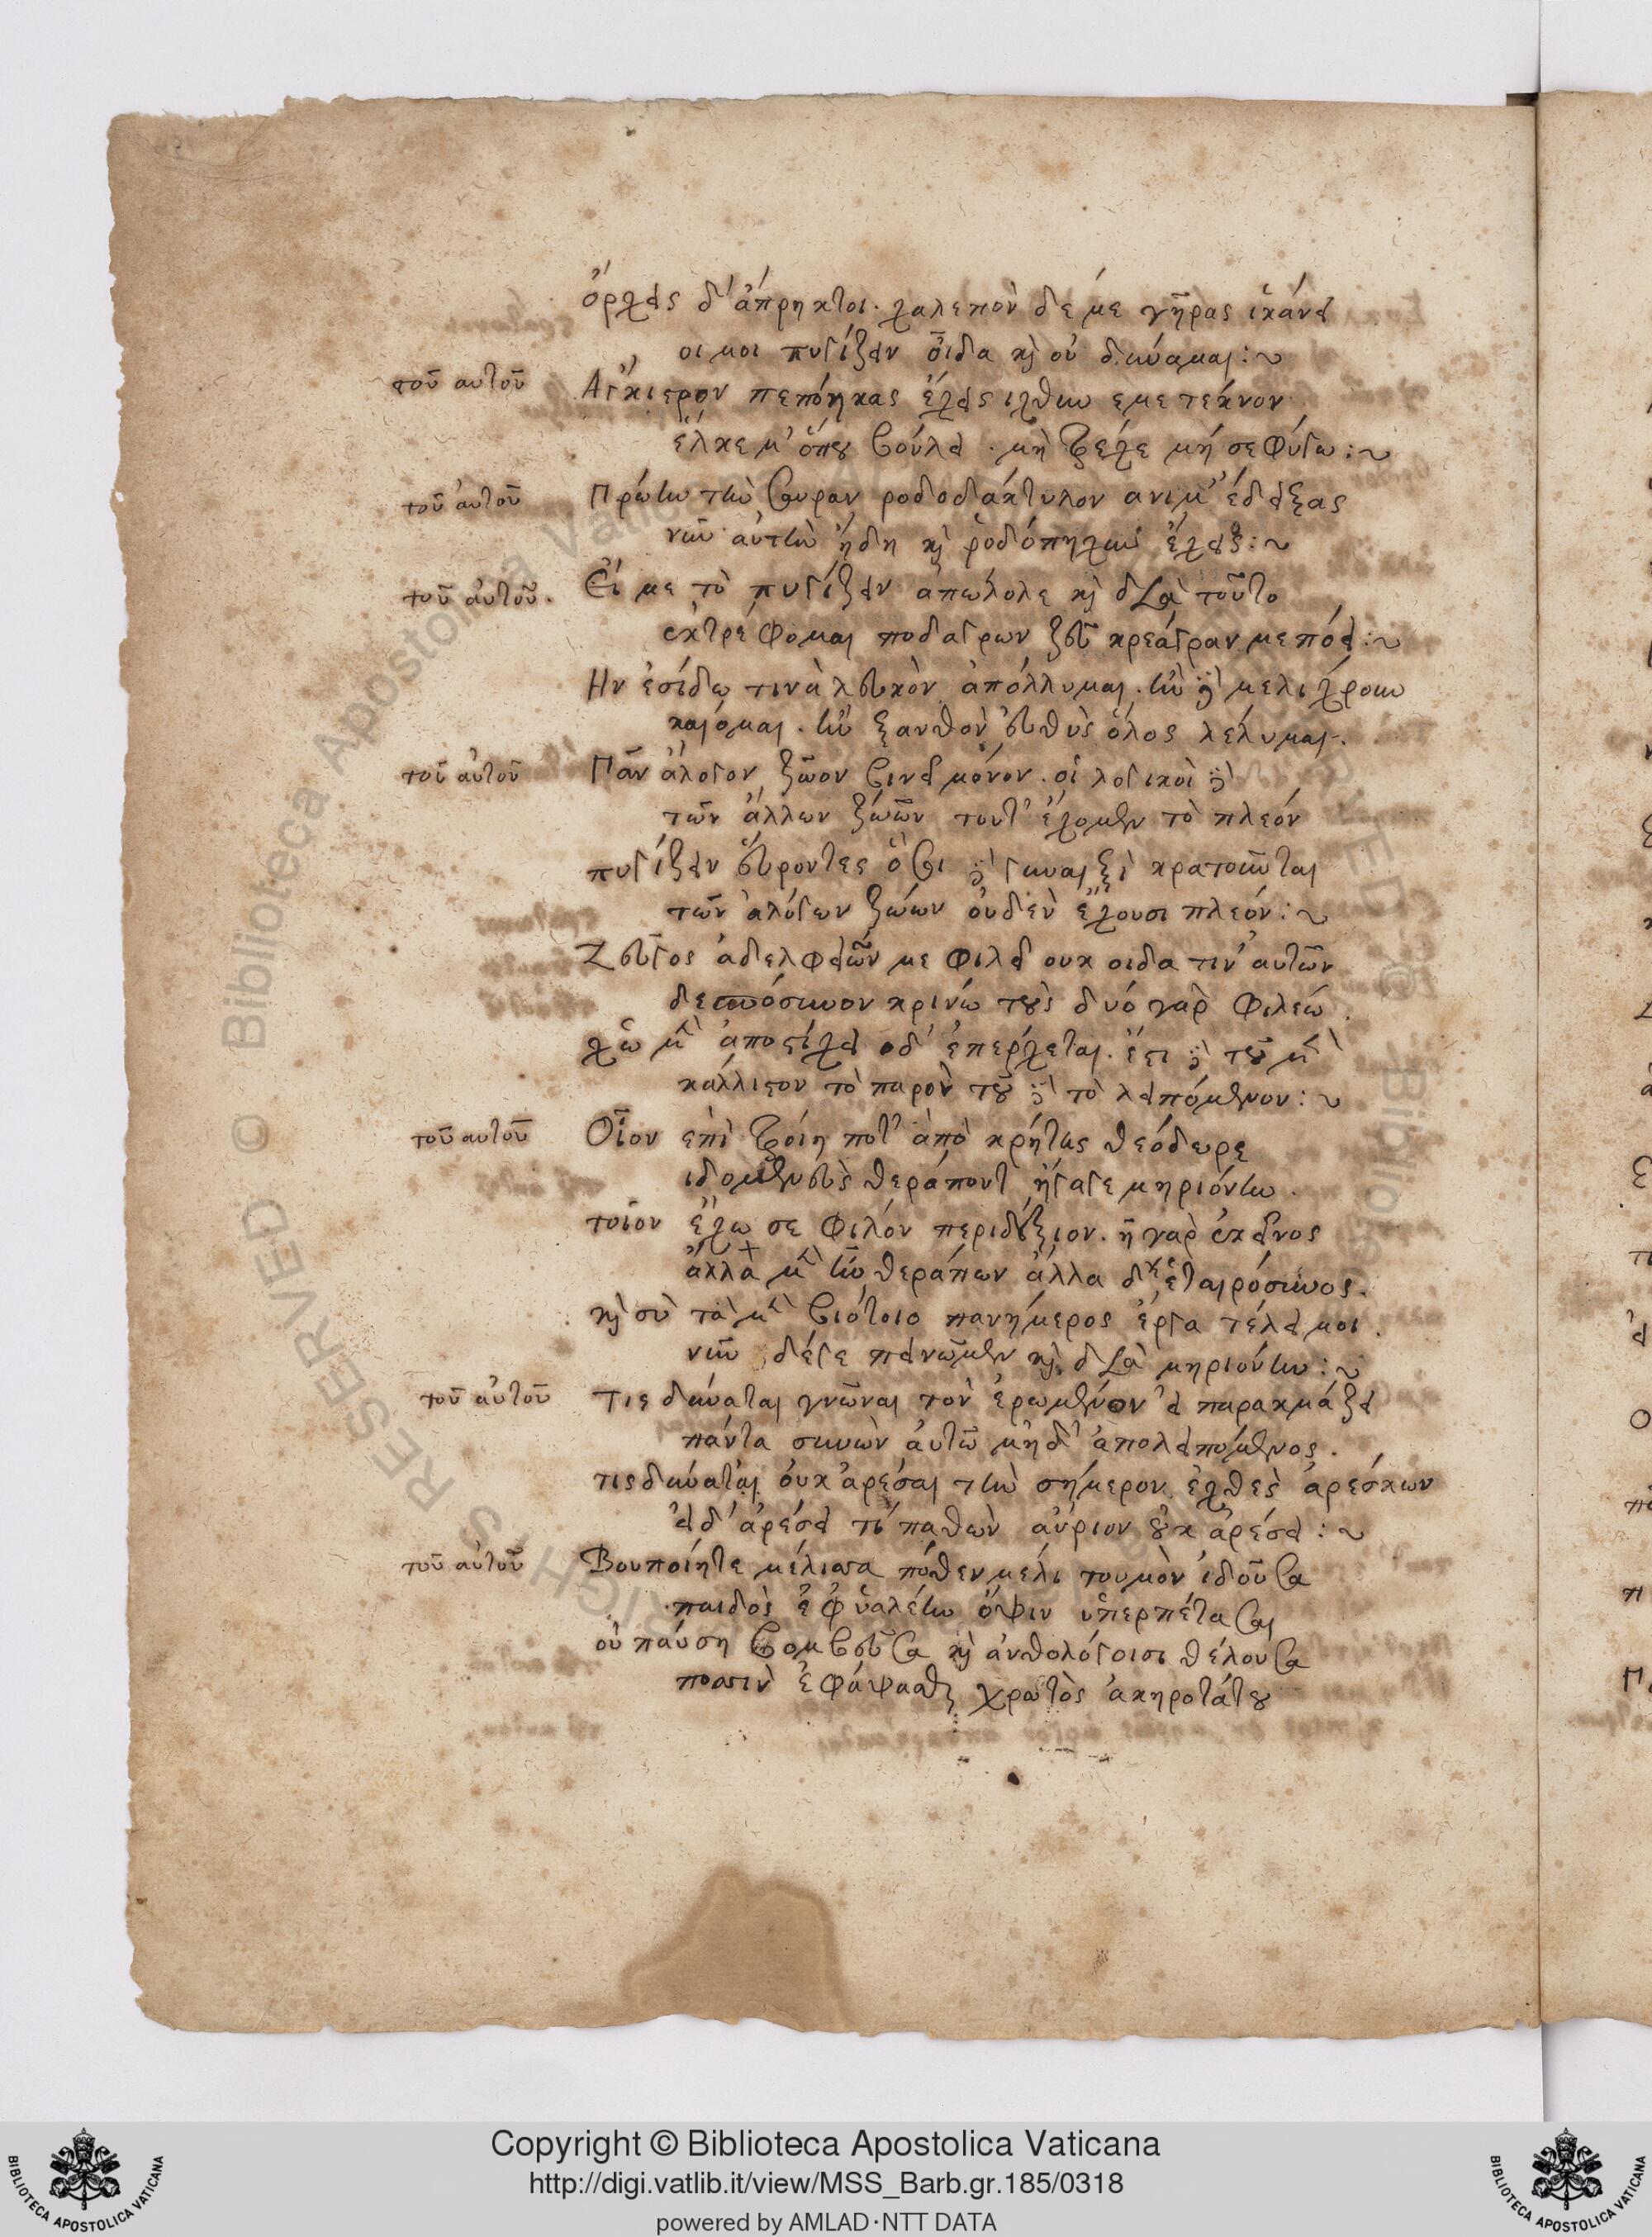 ὄρχεις δ' ἄπρηκτοι. χαλεπὸν δέ με γῆρας ἱκάνει
οι μοι πυγίζειν οἶδα καὶ οὐ δύναμαι:~
τοῦ αυτοῦ Αγκιερον πεπόηκας ἔχεις ιχθυν εμε τέκνον
ἕλκε μ' ὅπου βούλει. μὴ τρέχε μή σε φύγω:~
τοῦ ἀυτοῦ Πρώην τὴν σαυραν ροδοδάκτυλον ανιμ' ἔδειξας
νῦν αὐτὴν ἤδη καὶ ῥοδόπηχυν ἔχεις:~
τοῦ ἀυτοῦ. Εἴ με τὸ πυγίζειν ἀπώλολε καὶ διὰ τοῦτο
ἐκτρέφομαι ποδαγρων ζεῦ κρεάγραν με πόει:~
Ην ἐσίδω τινὰ λευκὸν ἀπόλλυμαι. ἢν δὲ μελιχρουν
καίομαι. ἢν ξανθὸν εὐθὺς ὅλος λέλυμαι.
τοῦ ἀυτοῦ Πᾶν ἄλογον ζῶον βινεῖ μόνον. οἱ λογικοὶ δὲ
τῶν ἄλλων ζώων τοῦτ' ἔχομεν τὸ πλέον
πυγίζειν εὕροντες ὅσοι δὲ γυναιξὶ κρατοῦνται
τῶν ἀλόγων ζώων οὐδὲν ἔχουσι πλέον:~
Ζεῦγος ἀδελφειῶν με φιλεῖ ουκ οιδα τίν' αυτῶν
δεσπόσυνον κρινῶ τοὺς δυό γαρ φιλέω.
χὼ μὲν ἀποστείχει οδ' ἐπέρχεται. ἔστι δὲ τοῦ μὲν
κάλλιστον τὸ παρὸν τοῦ δὲ τὸ λειπόμενον:~
τοῦ αυτοῦ Οἷον ἐπὶ τροίη ποτ' ἀπὸ κρήτης θεόδωρε
ιδομενεὺς θεράποντ' ἤγαγε μηριόνην.
τοῖον ἔχω σε φίλον περιδέξιον. ἦ γαρ ἐκεῖνος
ἄλλα μὲν ἦν θεράπων ἄλλα δ' ἑταιρόσυνος.
καὶ σὺ τὰ μὲν βιότοιο πανήμερος ἔργα τέλει μοι.
νῦν δέγε πεινῶμεν καὶ διὰ μηριόνην:~
τοῦ ἀυτοῦ Τις δύναται γνῶναι τὸν ἐρωμενον εἰ παρακμάζει
πάντα συνὼν ἀυτῶ μηδ' ἀπολειπόμενος.
τις δύναται ὀυκ ἀρέσαι τὴν σήμερον ἐχθὲς ἀρέσκων
εἰ δ' ἀρέσει τί παθὼν αὔριον οὐκ ἀρέσει:~
τοῦ ἀυτοῦ Βουποίητε μέλισσα πόθεν μέλι τουμὸν ἰδοῦσα
παιδὸς ἐφ' ὑαλέην ὄψιν ὑπερπέτασαι
οὐ παύση βομβεῦσα καὶ ἀνθολόγοισι θέλουσα
ποσσὶν ἐφάψασθαι χρωτὸς ἀκηροτάτου
Copyright © Biblioteca Apostolica Vaticana
http://digi.vatlib.it/view/MSS_Barb.gr.185/0318
powered by AMLAD·NTT DATA